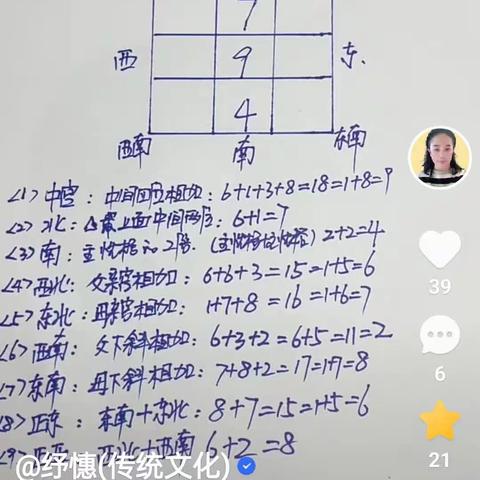 7
西 9 东.
4
西南 南 东南
<1> 中宫：中间四位相加：6+1+3+8=18=1+8=9
<2> 北：最上面中间两位：6+1=7
<3> 南：主性格的2倍.(主性格+主性格) 2+2=4
<4> 西北：父亲宫相加：6+6+3=15=1+5=6
<5> 东北：母亲宫相加：1+7+8=16=1+6=7
<6> 西南：父下斜相加：6+3+2=6+5=11=2
<7> 东南：母下斜相加：7+8+2=17=1+7=8
<8> 正东：东南+东北：8+7=15=1+5=6
<9> 正西 西北+西南 6+2=8
39
6
21
@纾慩(传统文化)